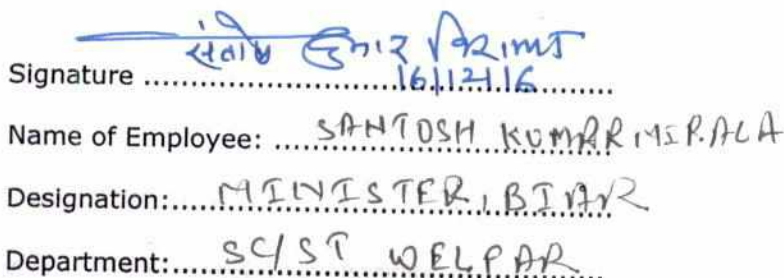 संतोष कुमार निराला
Signature ........ 16/12/16
Name of Employee: SANTOSH KUMAR NIRALA
Designation: MINISTER, BIAR
Department: SC/ST WELPAR